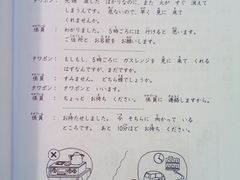 タワポン： 先週 直した ばかりなのに、また 火が すぐ 消えて
しまうんです。 危ないので、早く 見に 来て
くれませんか。
係員 ： わかりました。5時ごろには 行けると 思います。
ご住所と お名前を お願いします。
タワポン： もしもし、5時ごろに ガスレンジを 見に 来て くれる
はずなんですが、まだですか。
係員 ： すみません。どちら様でしょうか。
タワポン： タワポンと いいます。
係員 ： ちょっと お待ち ください。 係員に 連絡しますから。
係員 ： お待たせしました。今 そちらに 向かって いる
ところです。あと 10分ほど お待ち ください。